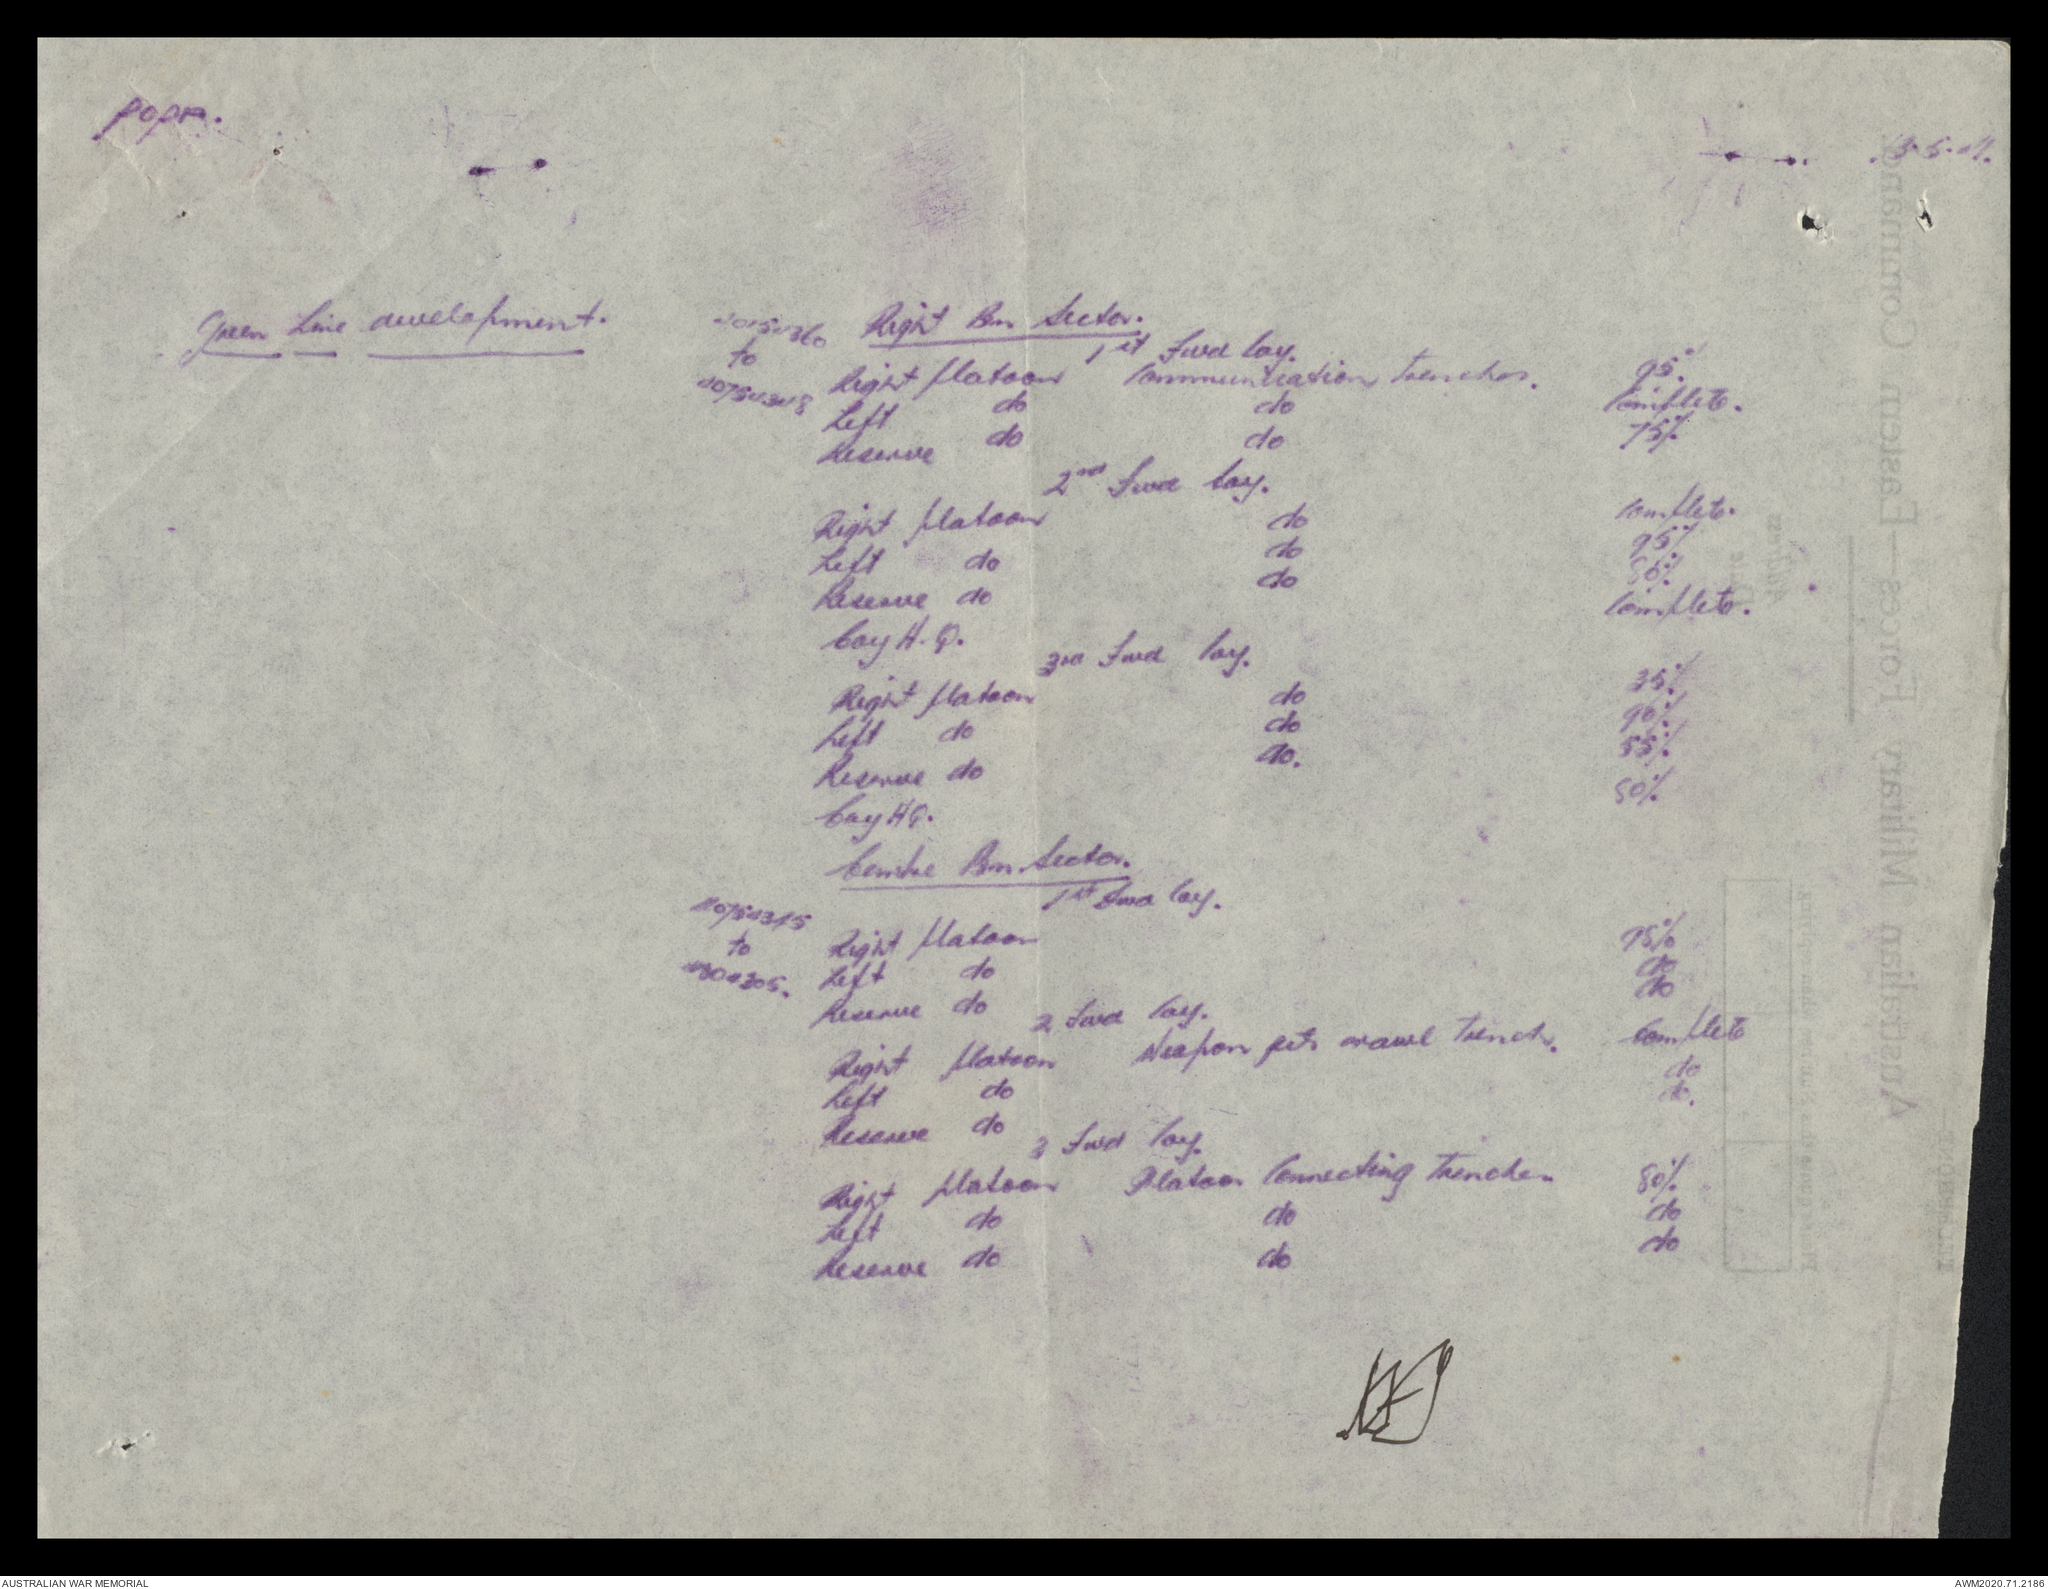 Green Line development.
to
Right Bn Sector.
1st Fwd Coy.
Right Platoon Communication trenches. 95%
Left do do Complete.
Reserve do do 75%
2nd Fwd Coy.
Right Platoon do Complete.
Left do do 95%
Reserve do do
Coy H.Q. Complete.
3rd Fwd Coy.
Right Platoon do 35%
Left do do 90%
Reserve do do. 55%
Coy HQ. 50%
Centre Bn Sector.
1st Fwd Coy.
to
Right Platoon
Left do do
Reserve do do
2 Fwd Coy.
Right Platoon Weapon pits crawl trench. Complete
Left do do
Reserve do do.
3 Fwd Coy.
Right Platoon Platoon Connecting Trenches. 80%
Left do do do
Reserve do do do
Australian Military Forces—Eastern Command
AUSTRALIAN WAR MEMORIAL
AWM2020.71.2186